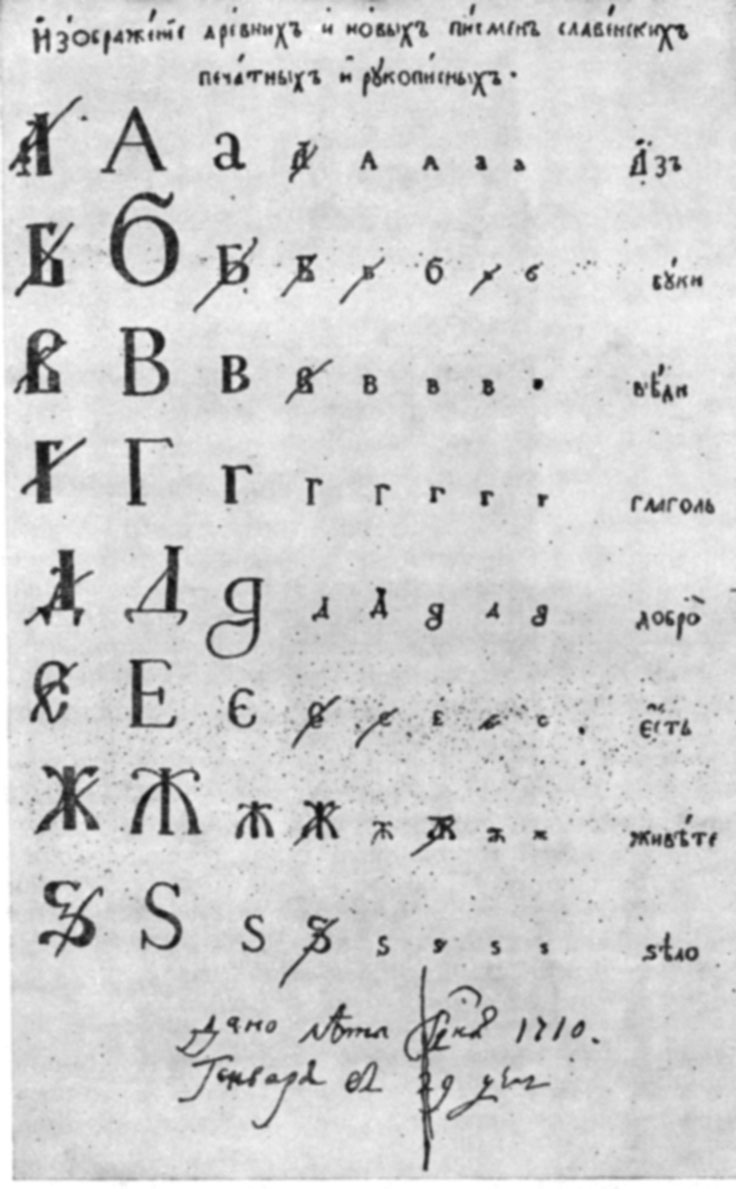 Изображе́нїе дре́внихъ и но́выхъ пи́сменъ славе́нскихъ
печа́тныхъ и рꙋкопи́сныхъ.
А А а А А А а а А҆зъ
Б б Б Б Б б Б б бꙋ́ки
В В в В В В В вѣ́ди
Г Г г Г Г г г г глаголь
Д Д д д Д д д д добро̀
Є Е є Є є є є с є҆́сть
Ж Ж ж Ж ж Ж ж ж живѣ́те
Ѕ Ѕ ѕ Ѕ ѕ ѕ ѕ ѕ ѕѣло
Дано лѣта 1710.
Генваря въ 29 день